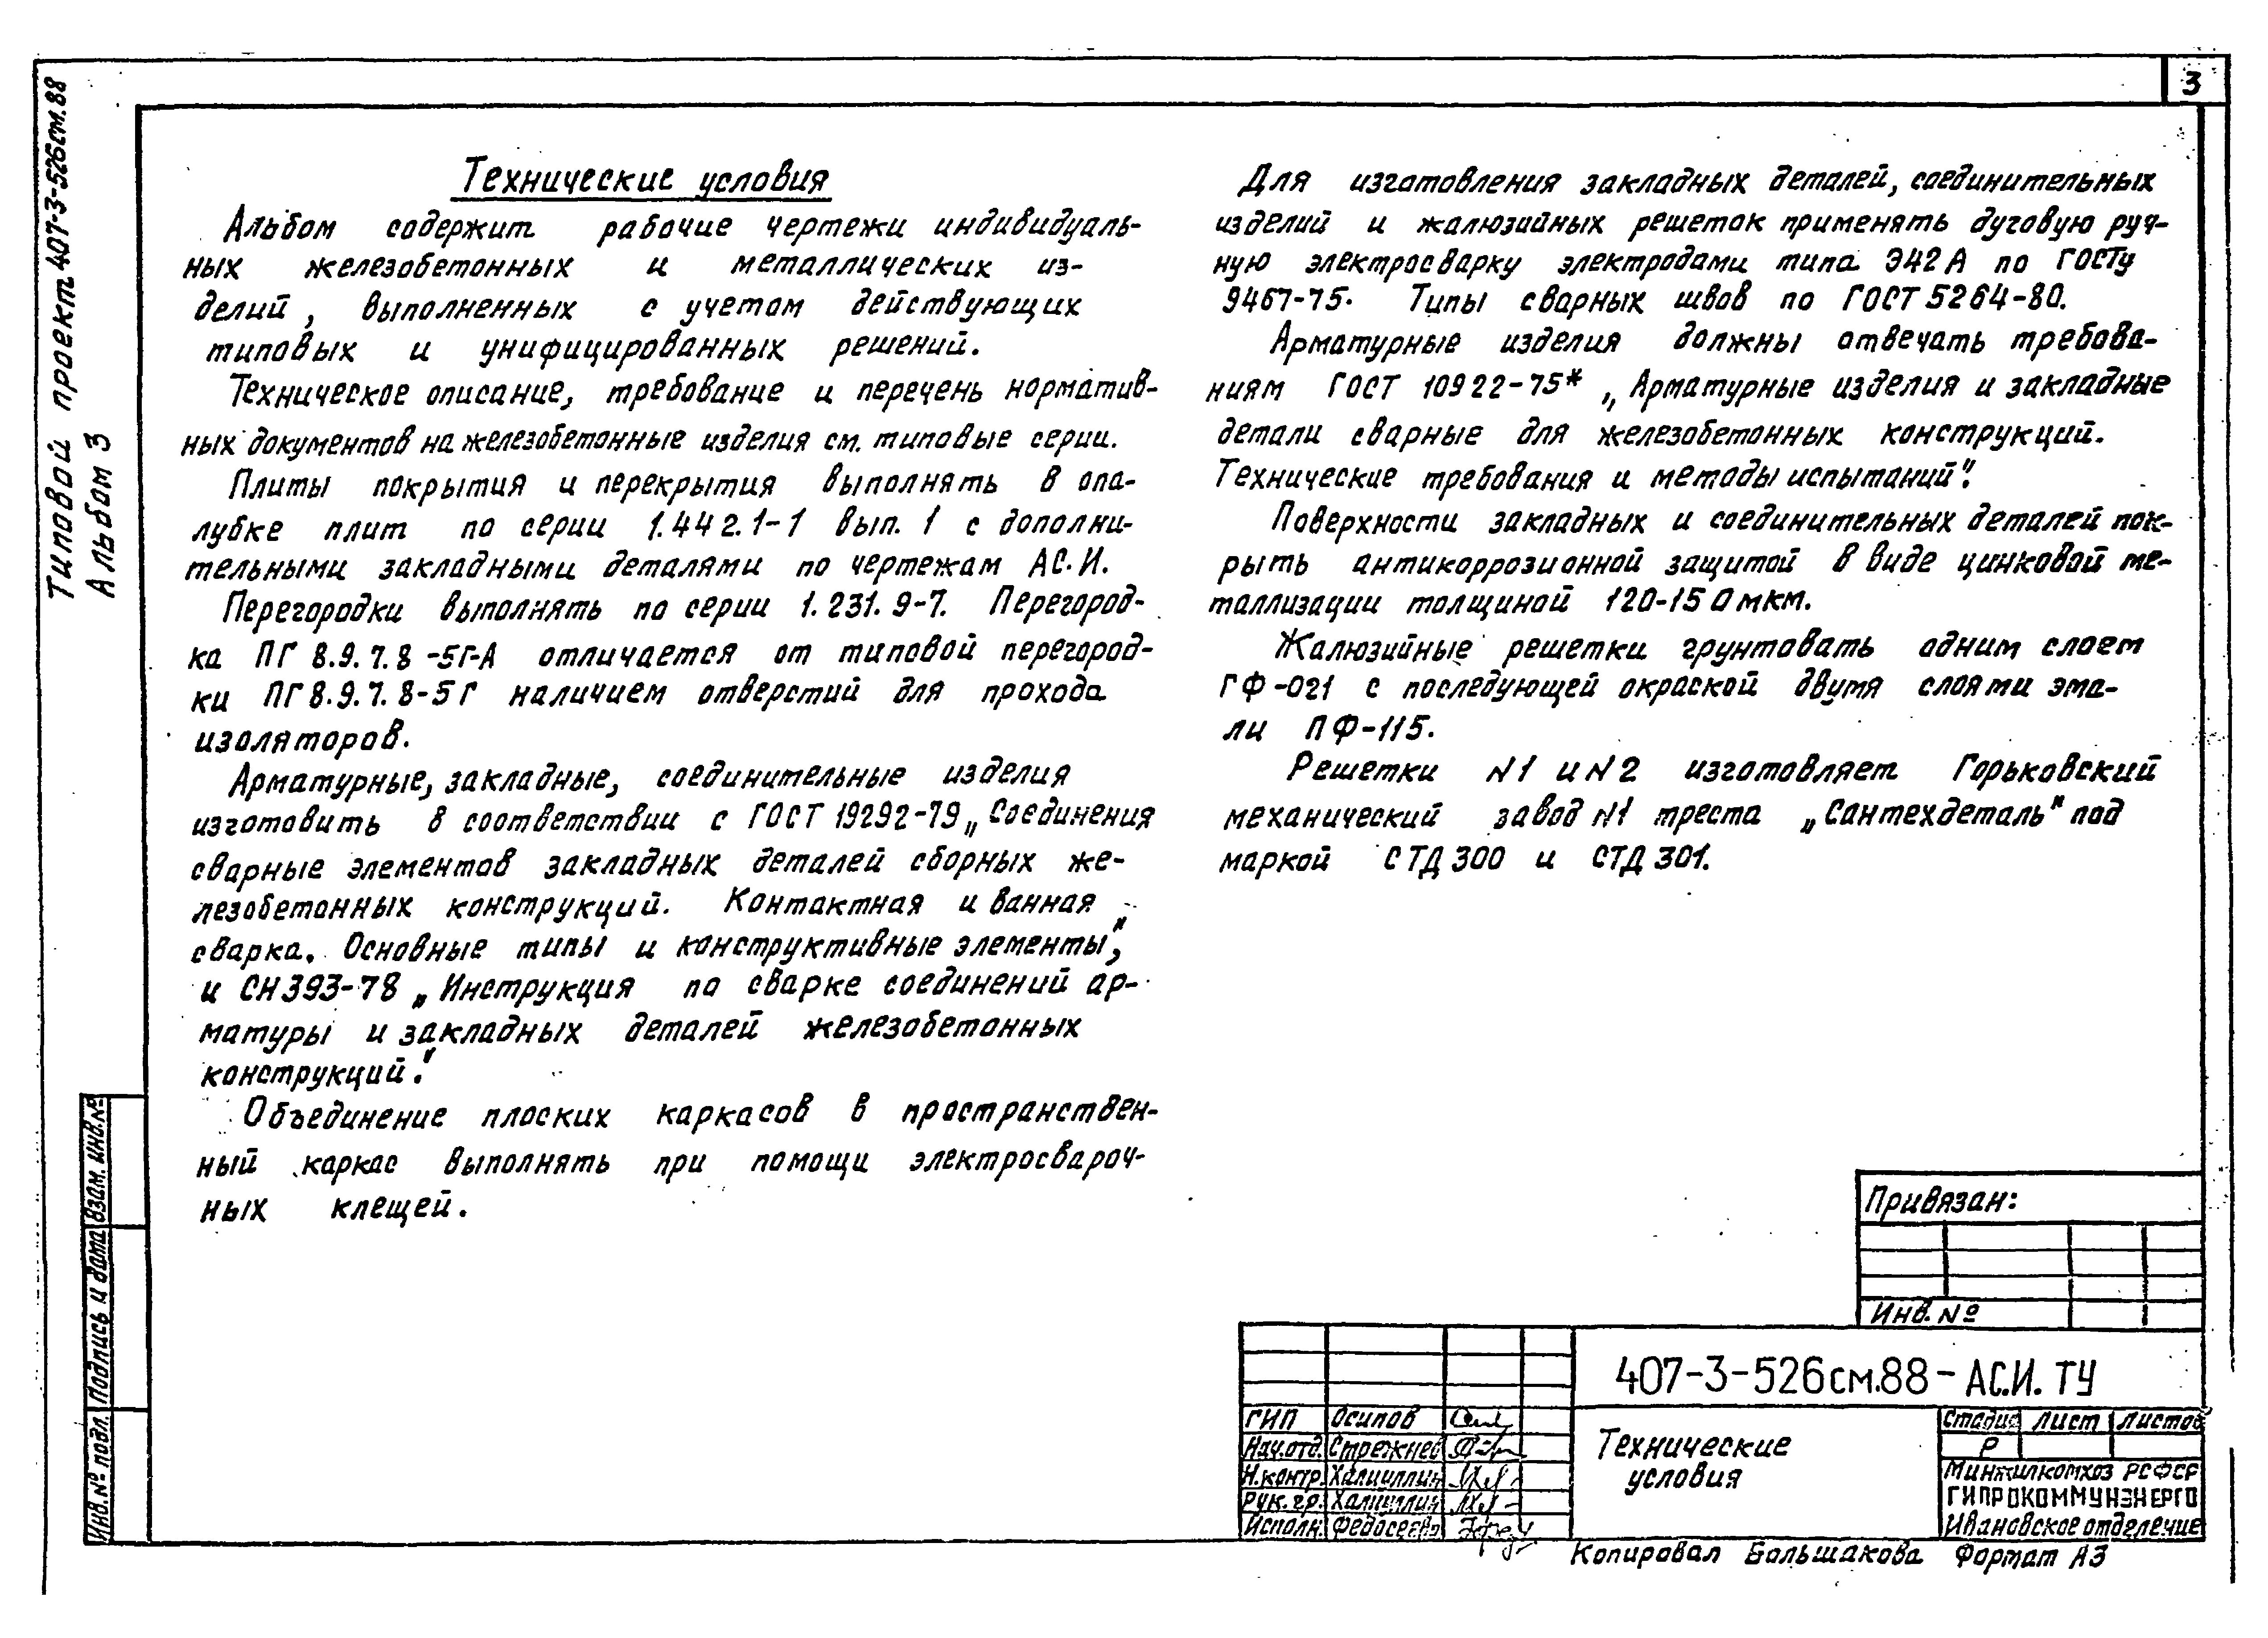 3
Типовой проект 407-3-526см.88
Альбом 3
Технические условия
Альбом содержит рабочие чертежи индивидуаль-
ных железобетонных и металлических из-
делий, выполненных с учетом действующих
типовых и унифицированных решений.
Техническое описание, требование и перечень норматив-
ных документов на железобетонные изделия см. типовые серии.
Плиты покрытия и перекрытия выполнять в опа-
лубке плит по серии 1.442.1-1 вып. 1 с дополни-
тельными закладными деталями по чертежам АС.И.
Перегородки выполнять по серии 1.231.9-7. Перегород-
ка ПГ 8.9.7.8-5Г-А отличается от типовой перегород-
ки ПГ 8.9.7.8-5Г наличием отверстий для прохода
изоляторов.
Арматурные, закладные, соединительные изделия
изготовить в соответствии с ГОСТ 19292-79 „Соединения
сварные элементов закладных деталей сборных же-
лезобетонных конструкций. Контактная и ванная
сварка. Основные типы и конструктивные элементы",
и СН 393-78 „Инструкция по сварке соединений ар-
матуры и закладных деталей железобетонных
конструкций".
Объединение плоских каркасов в пространствен-
ный каркас выполнять при помощи электросвароч-
ных клещей.
Для изготовления закладных деталей, соединительных
изделий и жалюзийных решеток применять дуговую руч-
ную электросварку электродами типа Э42А по ГОСТу
9467-75. Типы сварных швов по ГОСТ 5264-80.
Арматурные изделия должны отвечать требова-
ниям ГОСТ 10922-75* „Арматурные изделия и закладные
детали сварные для железобетонных конструкций.
Технические требования и методы испытаний".
Поверхности закладных и соединительных деталей пок-
рыть антикоррозионной защитой в виде цинковой ме-
таллизации толщиной 120-150мкм.
Жалюзийные решетки грунтовать одним слоем
ГФ-021 с последующей окраской двумя слоями эма-
ли ПФ-115.
Решетки N1 и N2 изготовляет Горьковский
механический завод N1 треста „Сантехдеталь" под
маркой СТД 300 и СТД 301.
Привязан:
Инв. №
407-3-526см.88-АС.И.ТУ
ГИП Осипов
Нач.отд. Стрежнев
Н.контр. Халиуллин
Рук.гр. Халиуллин
Исполн.
Технические
условия
Стадия Лист Листов
Р
Минжилкомхоз РСФСР
ГИПРОКОММУНЭНЕРГО
Ивановское отделение
Копировал Большакова Формат А3
Взам. инв.№
Подпись и дата
Инв.№ подл.